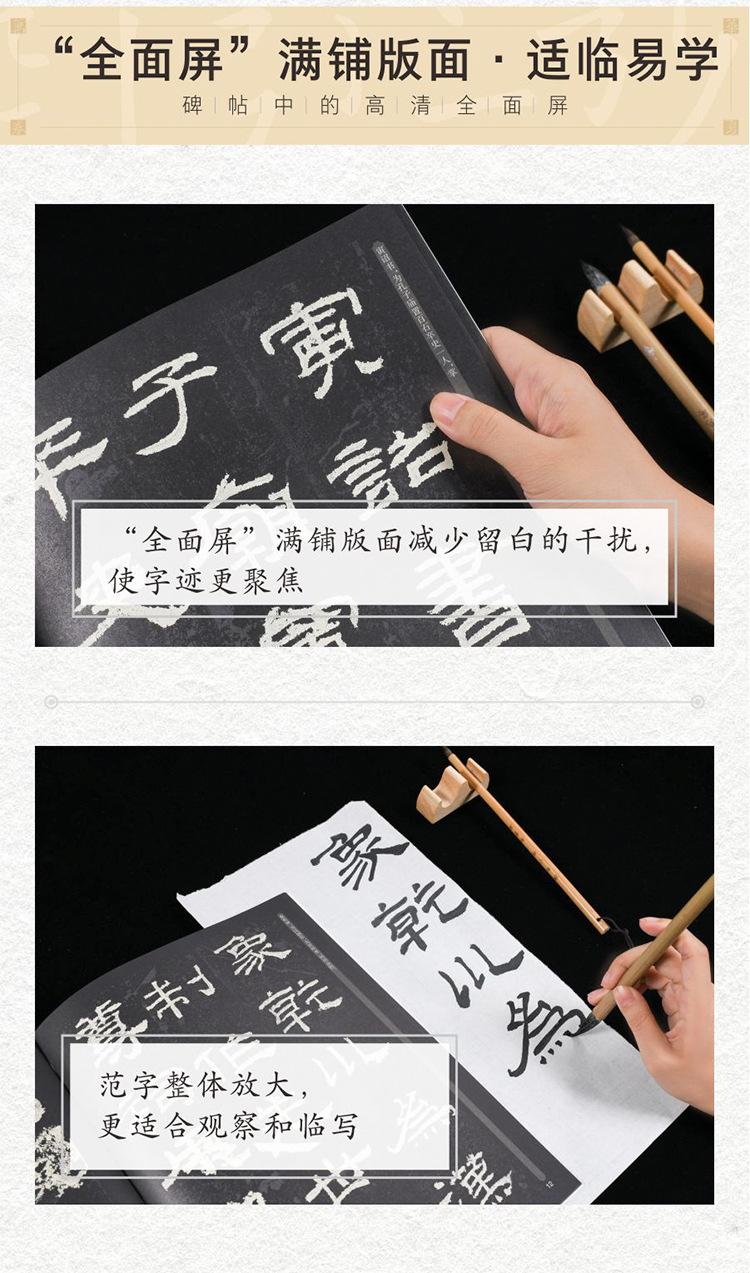 “全面屏”满铺版面·适临易学
碑帖中的高清全面屏
寅
子
诘
庙
書
“全面屏”满铺版面减少留白的干扰，
使字迹更聚焦
象
乾
川
為
象
制
尊
乾
川
為
世
漢
范字整体放大，
更适合观察和临写
12